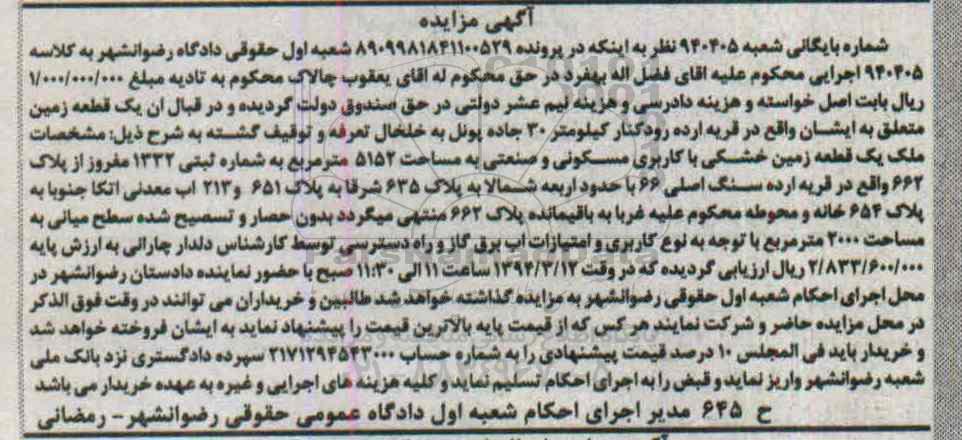 آگهی مزایده
شماره بایگانی شعبه ۹۴۰۴۰۵ نظر به اینکه در پرونده ۸۹۰۹۹۸۱۸۴۱۱۰۰۵۲۹ شعبه اول حقوقی دادگاه رضوانشهر به کلاسه
۹۴۰۴۰۵ اجرایی محکوم علیه اقای فضل اله بهفرد در حق محکوم له اقای یعقوب چالاک محکوم به تادیه مبلغ ۱/۰۰۰/۰۰۰/۰۰۰
ریال بابت اصل خواسته و هزینه دادرسی و هزینه نیم عشر دولتی در حق صندوق دولت گردیده و در قبال ان یک قطعه زمین
متعلق به ایشان واقع در قریه ارده رودکنار کیلومتر ۳۰ جاده پونل به خلخال تعرفه و توقیف گشته به شرح ذیل: مشخصات
ملک یک قطعه زمین خشکی با کاربری مسکونی و صنعتی به مساحت ۵۱۵۲ مترمربع به شماره ثبتی ۱۳۳۲ مفروز از پلاک
۶۶۲ واقع در قریه ارده سنگ اصلی ۶۶ با حدود اربعه شمالا به پلاک ۶۳۵ شرقا به پلاک ۶۵۱ و ۲۱۳ اب معدنی اتکا جنوبا به
پلاک ۶۵۴ خانه و محوطه محکوم علیه غربا به باقیمانده پلاک ۶۶۲ منتهی میگردد بدون حصار و تسصیح شده سطح میانی به
مساحت ۲۰۰۰ مترمربع با توجه به نوع کاربری و امتیازات اب برق گاز و راه دسترسی توسط کارشناس دلدار چارانی به ارزش پایه
۲/۸۳۳/۶۰۰/۰۰۰ ریال ارزیابی گردیده که در وقت ۱۳۹۴/۳/۱۲ ساعت ۱۱ الی ۱۱:۳۰ صبح با حضور نماینده دادستان رضوانشهر در
محل اجرای احکام شعبه اول حقوقی رضوانشهر به مزایده گذاشته خواهد شد طالبین و خریداران می توانند در وقت فوق الذکر
در محل مزایده حاضر و شرکت نمایند هر کس که از قیمت پایه بالاترین قیمت را پیشنهاد نماید به ایشان فروخته خواهد شد
و خریدار باید فی المجلس ۱۰ درصد قیمت پیشنهادی را به شماره حساب ۲۱۷۱۲۹۴۵۴۳۰۰۰ سپرده دادگستری نزد بانک ملی
شعبه رضوانشهر واریز نماید و قبض را به اجرای احکام تسلیم نماید و کلیه هزینه های اجرایی و غیره به عهده خریدار می باشد
ح ۶۴۵ مدیر اجرای احکام شعبه اول دادگاه عمومی حقوقی رضوانشهر - رمضانی